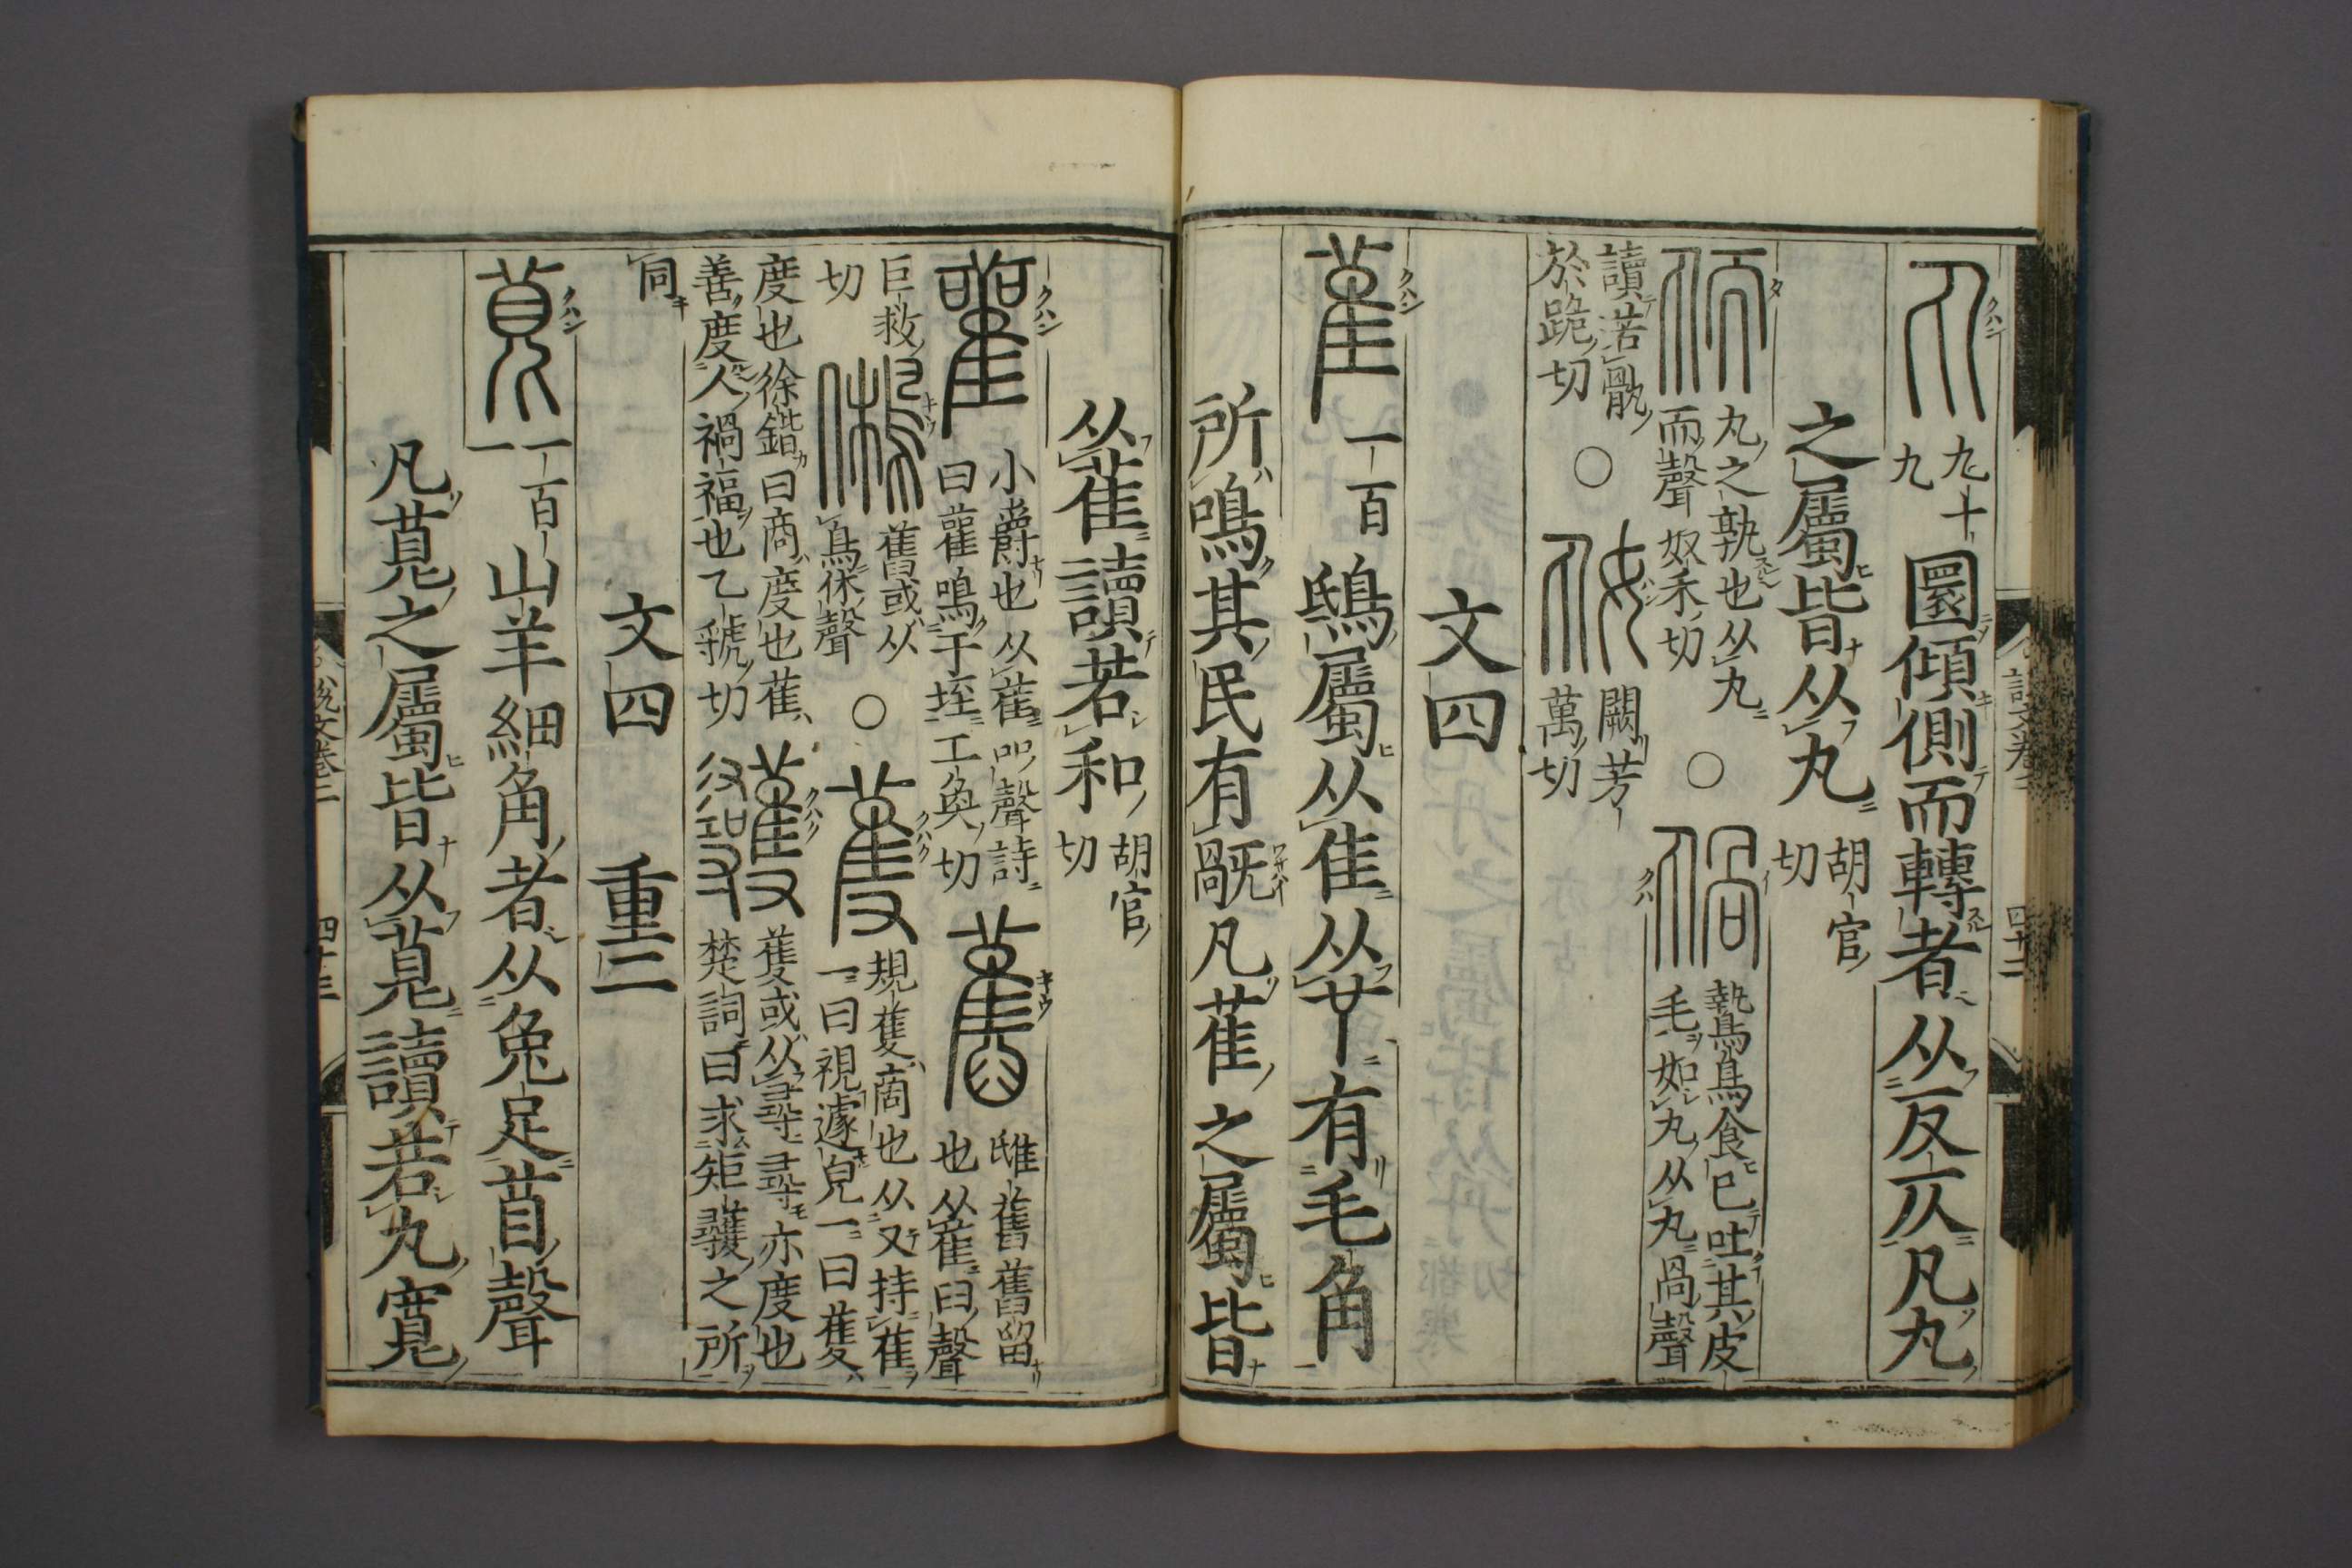 九十
九
圜傾側而轉者从反仄凡丸
之屬皆从丸
胡官
切
丸之孰也从丸
而聲奴禾切
○
鷙鳥食已吐其皮
毛如丸从丸咼聲
讀若骫
於跪切
○
闕芳
萬切
文四
萑
一百
鴟屬从隹从𦫳有毛角
所鳴其民有旤凡萑之屬皆
从萑讀若和
胡官
切
小爵也从萑吅聲詩
曰雚鳴于垤工奐切
雖舊舊留
也从萑臼聲
巨救
切
舊或从
鳥休聲
○
規蒦商也从又持萑
一曰視遽皃一曰蒦
度也徐鍇曰商度也萑
善度人禍福也乙虢切
蒦或从尋尋亦度也
楚詞曰求矩彠之所
同
文四
重二
一百
一
山羊細角者从兔足苜聲
凡萈之屬皆从萈讀若丸寬
說文卷二
四十二
說文卷二
四十三